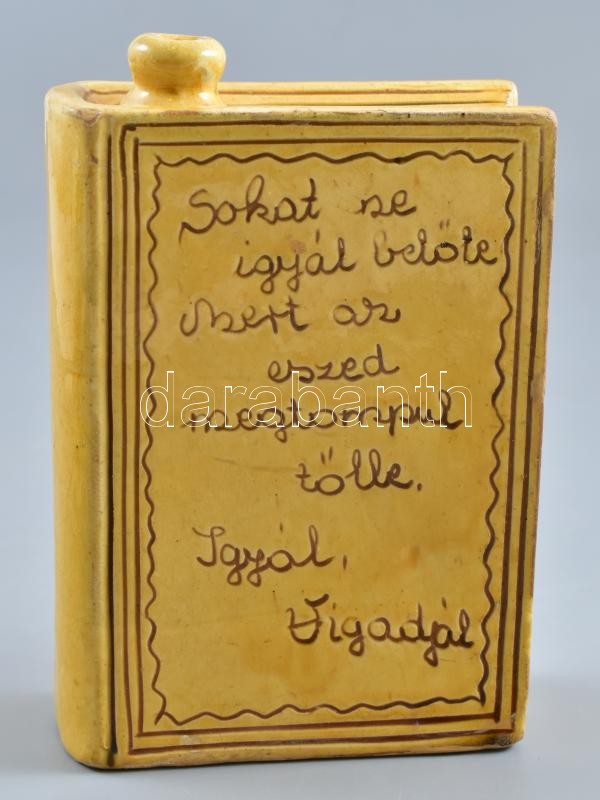 Sokat ne
igyál belőle
Mert az
eszed
megtompul
tőlle.
Igyál,
Vigadjál
darabanth